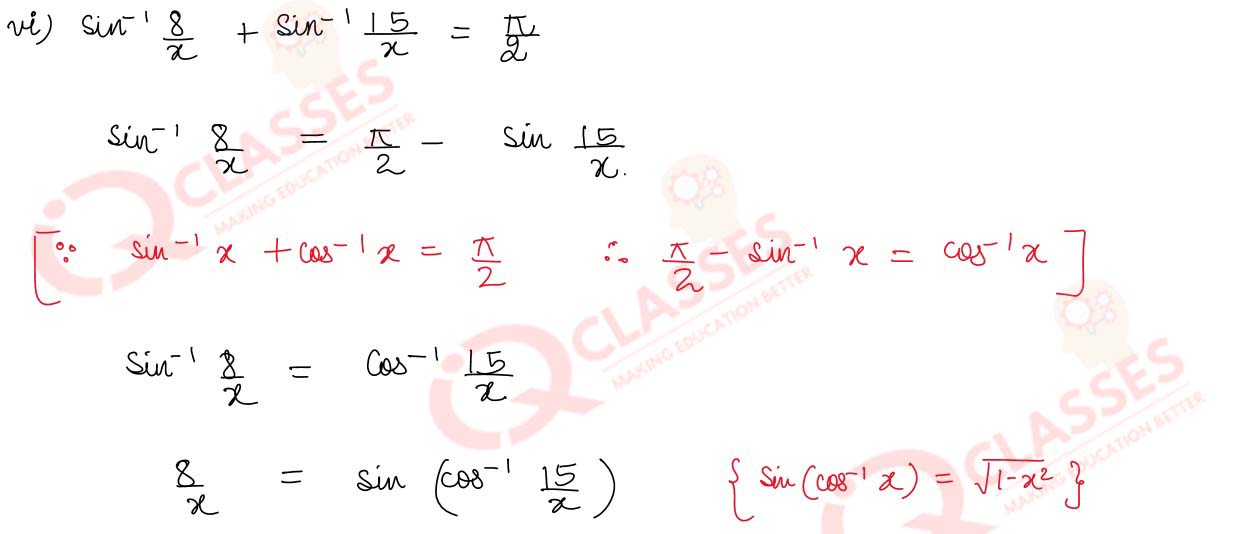 vi) sin⁻¹ 8/x + sin⁻¹ 15/x = π/2
sin⁻¹ 8/x = π/2 − sin 15/x.
[∵ sin⁻¹ x + cos⁻¹ x = π/2 ∴ π/2 − sin⁻¹ x = cos⁻¹ x]
Sin⁻¹ 8/x = Cos⁻¹ 15/x
8/x = sin (cos⁻¹ 15/x) {sin(cos⁻¹ x) = √1-x²}
CLASSES
MAKING EDUCATION BETTER
CLASSES
MAKING EDUCATION BETTER
CLASSES
MAKING EDUCATION BETTER